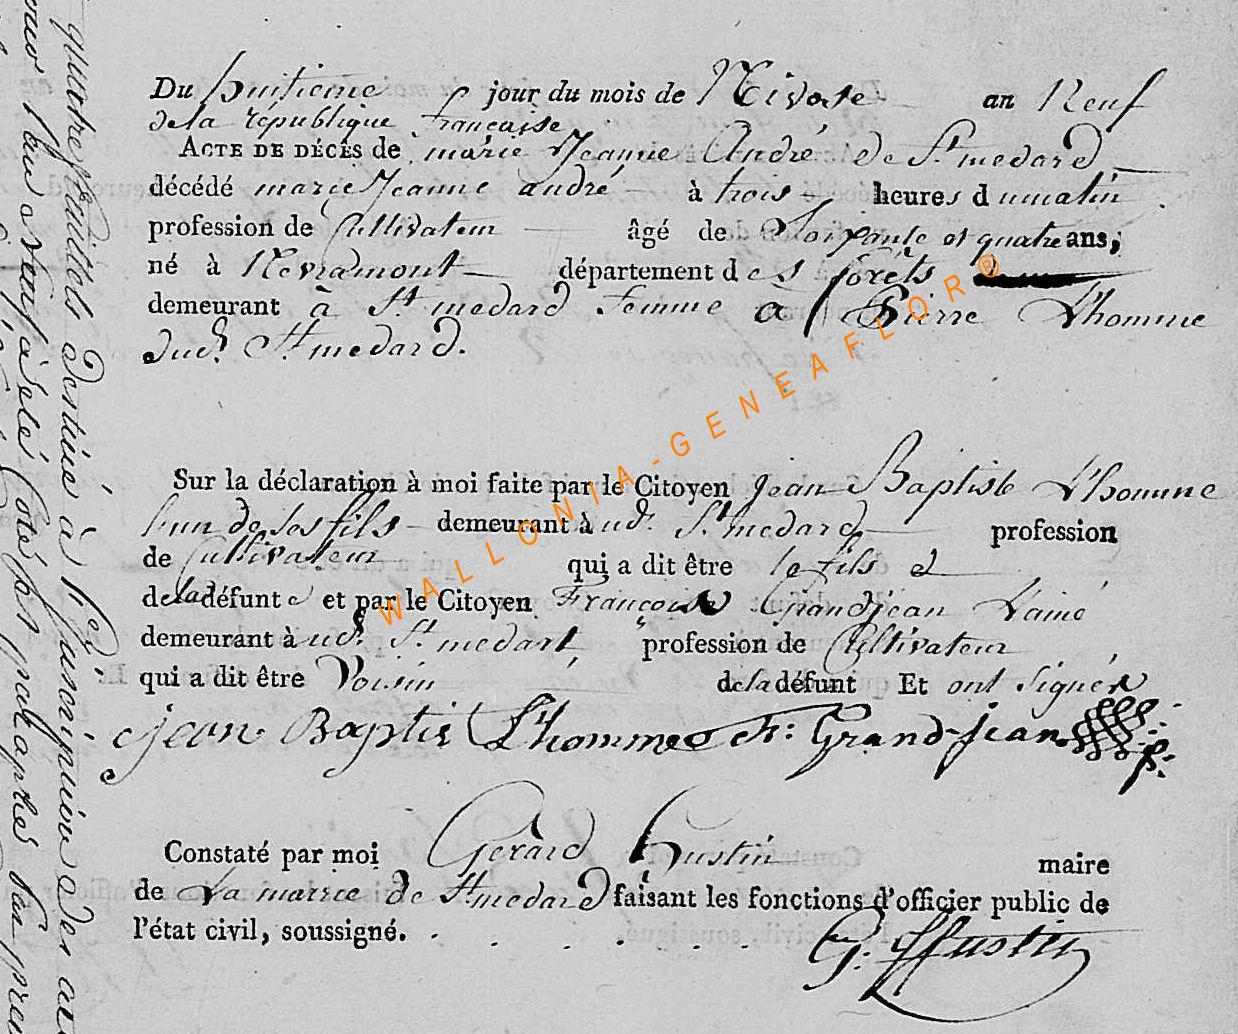 Du huitieme jour du mois de Nivose an Neuf
de la république française
ACTE DE DÉCÈS de marie Jeanne André de St medard
décédé marie Jeanne andré à trois heures du matin
profession de Cultivateur âgé de Soixante et quatre ans,
né à Nevramont département des forêts
demeurant à St medard femme à Pierre Lhomme
dud. St medard.
Sur la déclaration à moi faite par le Citoyen jean Baptiste Lhomme
l'un de ses fils demeurant à ud. St medard profession
de Cultivateur qui a dit être le fils
de la défunte et par le Citoyen François Grandjean L'ainé
demeurant à ud. St medart profession de Cultivateur
qui a dit être Voisin de la défunt Et ont Signés
jean Baptis Lhomme f: Grand-jean
Constaté par moi Gerard hustin maire
de La marrie de St medard faisant les fonctions d'officier public de
l'état civil, soussigné.
G: hustin
WALLONIA-GENEAFLOR®